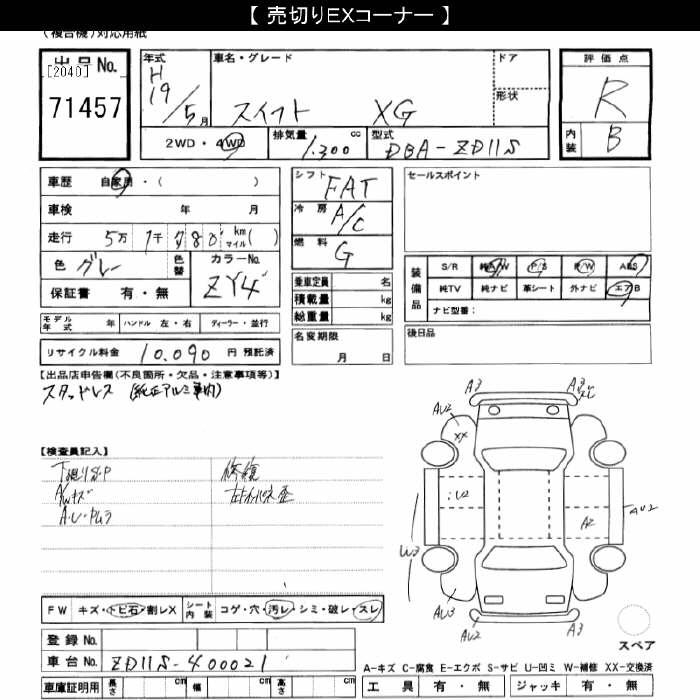 【 売切りEXコーナー 】
(複合機)対応用紙
出品No.
[2040]
71457
年式
H
19/5月
車名・グレード
スイフト XG
ドア
形状
評価点
R
内装 B
2WD・4WD
排気量 1,300 cc
型式 DBA-ZD11S
車歴 自家用・( )
車検 年 月
走行 5万 1千 780 kmマイル( )
色 グレー
色替
カラーNo. ZY4
保証書 有・無
モデル年式 年 ハンドル 左・右 ディーラー・並行
リサイクル料金 10,090 円 預託済
シフト FAT
冷房 A/C
燃料 G
乗車定員 名
積載量 kg
総重量 kg
名変期限
月 日
セールスポイント
装備品
S/R 純A/W P/S P/W ABS
純TV 純ナビ 革シート 外ナビ エアB
ナビ型番:
後日品
【出品店申告欄(不良箇所・欠品・注意事項等)】
スタッドレス (純正アルミ車内)
【検査員記入】
下廻りサビ 修復
A/Wキズ
A・U・ムラ
A3 A3
AU2
XX
U2
A2
AU2
W3
AU3
AU2
A3
スペア
FW キズ・トビ石・割レX シート内装 コゲ・穴・汚レ・シミ・破レ・スレ
登録No.
車台No. ZD11S-400021
車庫証明用 長さ cm 幅 cm 高さ cm
A-キズ C-腐食 E-エクボ S-サビ U-凹ミ W-補修 XX-交換済
工具 有・無 ジャッキ 有・無